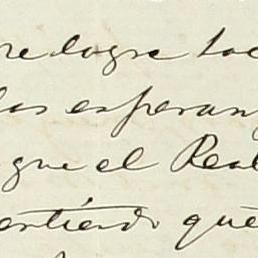 re logre toc
las esperan
que el Real
entiendo que